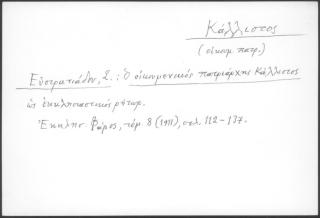 Κάλλιστος
(οἰκουμ. πατρ.)
Εὐστρατιάδου, Σ.: Ὁ οἰκουμενικὸς πατριάρχης Κάλλιστος
ὡς ἐκκλησιαστικὸς ρήτωρ.
Ἐκκλησ. Φάρος, τόμ. 8 (1911), σελ. 112-137.